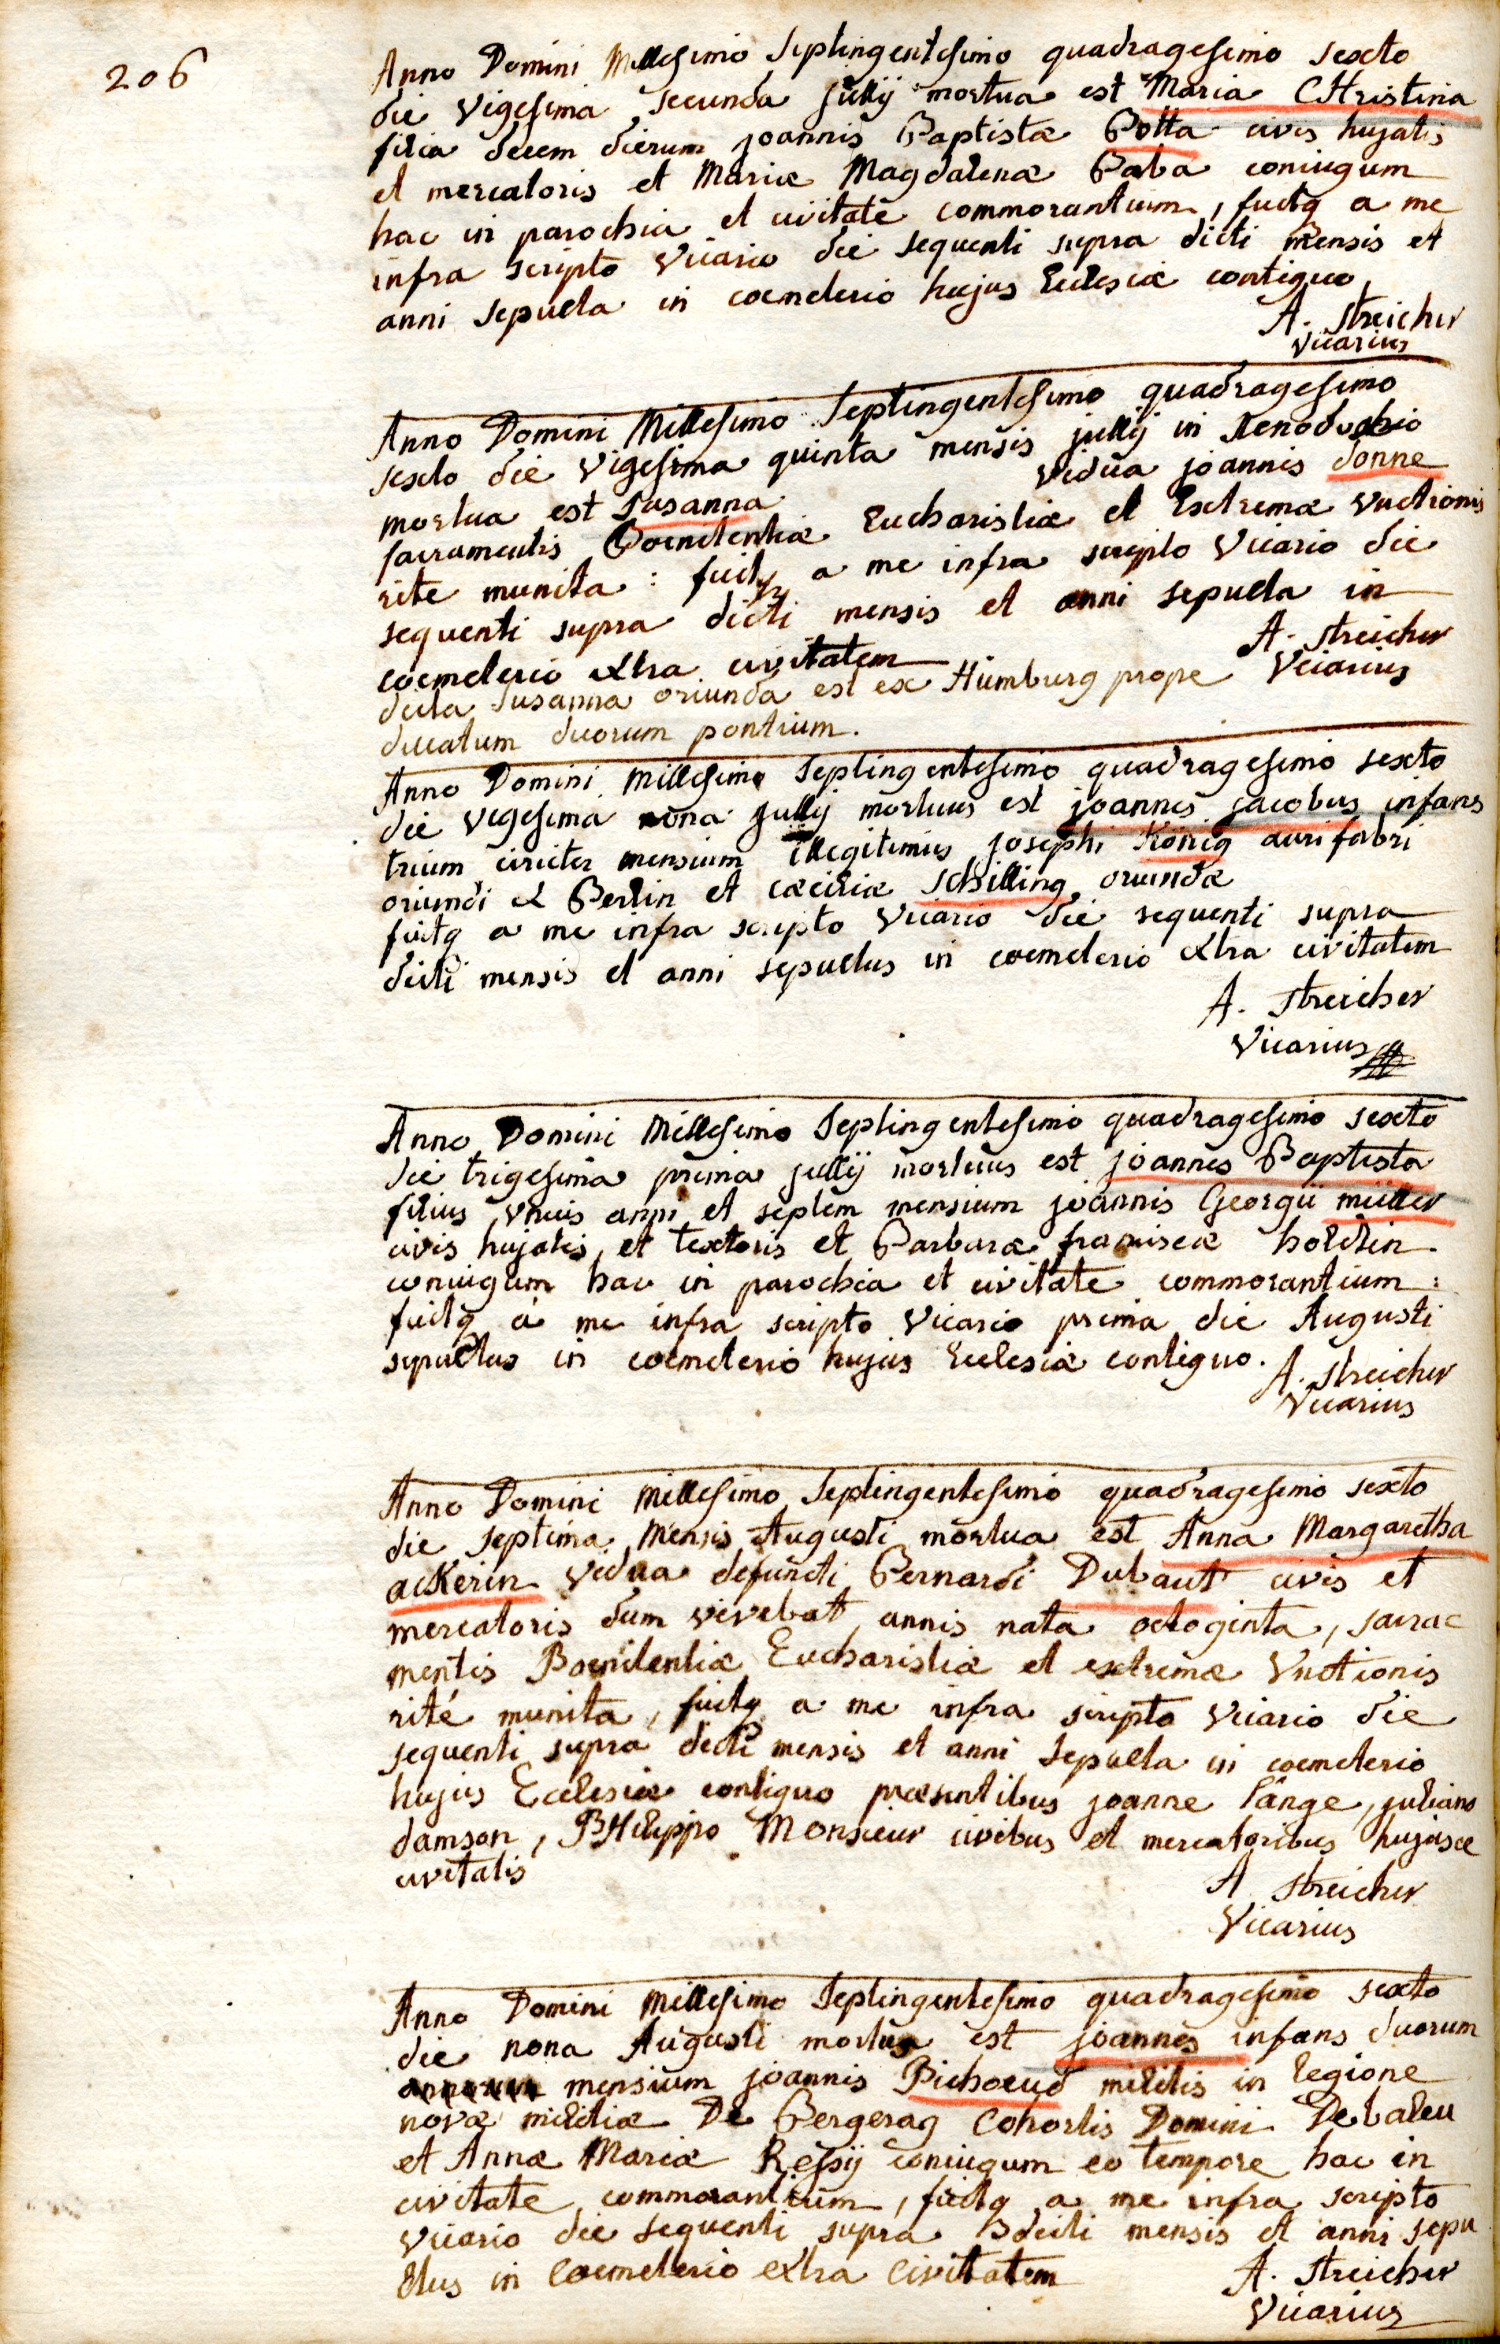 206
Anno Domini Millesimo Septingentesimo quadragesimo sexto
die vigesima secunda jullij mortua est Maria CHristina
filia decem dierum joannis Baptistæ Botta civis hujatis
et mercatoris et Mariæ Magdalenæ Baba coniugum
hac in parochia et civitate commorantium, fuitq a me
infra scripto vicario die sequenti supra dicti mensis et
anni sepulta in coemeterio hujus Ecclesiæ contiguo,
A. Streicher
vicarius
Anno Domini Millesimo Septingentesimo quadragesimo
sexto die vigesima quinta mensis jullij in Xenodochio
mortua est Susanna vidua joannis donne
sacramentis Poenitentiæ Eucharistiæ et Extremæ Vnctionis
rite munita: fuitq a me infra scripto Vicario die
sequenti supra dicti mensis et anni sepulta in
coemeterio extra civitatem
A. Streicher
Vicarius
dicta Susanna oriunda est ex Humburg prope
ducatum duorum pontium.
Anno Domini Millesimo Septingentesimo quadragesimo sexto
die vigesima nona jullij mortuus est joannes jacobus infans
trium circiter mensium illegitimus josephi König aurifabri
oriundi ex Berlin et cæciliæ Schilling oriundæ
fuitq a me infra scripto Vicario die sequenti supra
dicti mensis et anni sepultus in coemeterio extra civitatem
A. Streicher
Vicarius
Anno Domini Millesimo Septingentesimo quadragesimo sexto
die trigesima prima jullij mortuus est joannes Baptista
filius vnius anni et septem mensium joannis Georgii müller
civis hujatis, et textoris et Barbaræ franciscæ holdin
coniugum hac in parochia et civitate commorantium:
fuitq à me infra scripto Vicario prima die Augusti
sepultus in coemeterio hujus Ecclesiæ contiguo.
A. Streicher
Vicarius
Anno Domini Millesimo Septingentesimo quadragesimo sexto
die septima Mensis Augusti mortua est Anna Margaretha
acKerin vidua defuncti Bernardi Dubaut civis et
mercatoris dum vivebat, annis nata octoginta, sacra=
mentis Poenitentiæ Eucharistiæ et extremæ Vnctionis
rité munita, fuitq a me infra scripto Vicario die
sequenti supra dicti mensis et anni sepulta in coemeterio
hujus Ecclesiæ contiguo præsentibus joanne lange, juliano
damson, PHilippo Monsieur civibus et mercatoribus hujusce
civitatis
A Streicher
Vicarius
Anno Domini Millesimo Septingentesimo quadragesimo sexto
die nona Augusti mortuus est joannes infans duorum
mensium joannis Bichoeud militis in legione
novæ militiæ De Bergerag Cohortis Domini Debaleu
et Annæ Mariæ Ressij coniugum eo tempore hac in
civitate commorantium, fuitq a me infra scripto
vicario die sequenti supra dicti mensis et anni sepu
ltus in Coemeterio extra Civitatem
A. Streicher
Vicarius